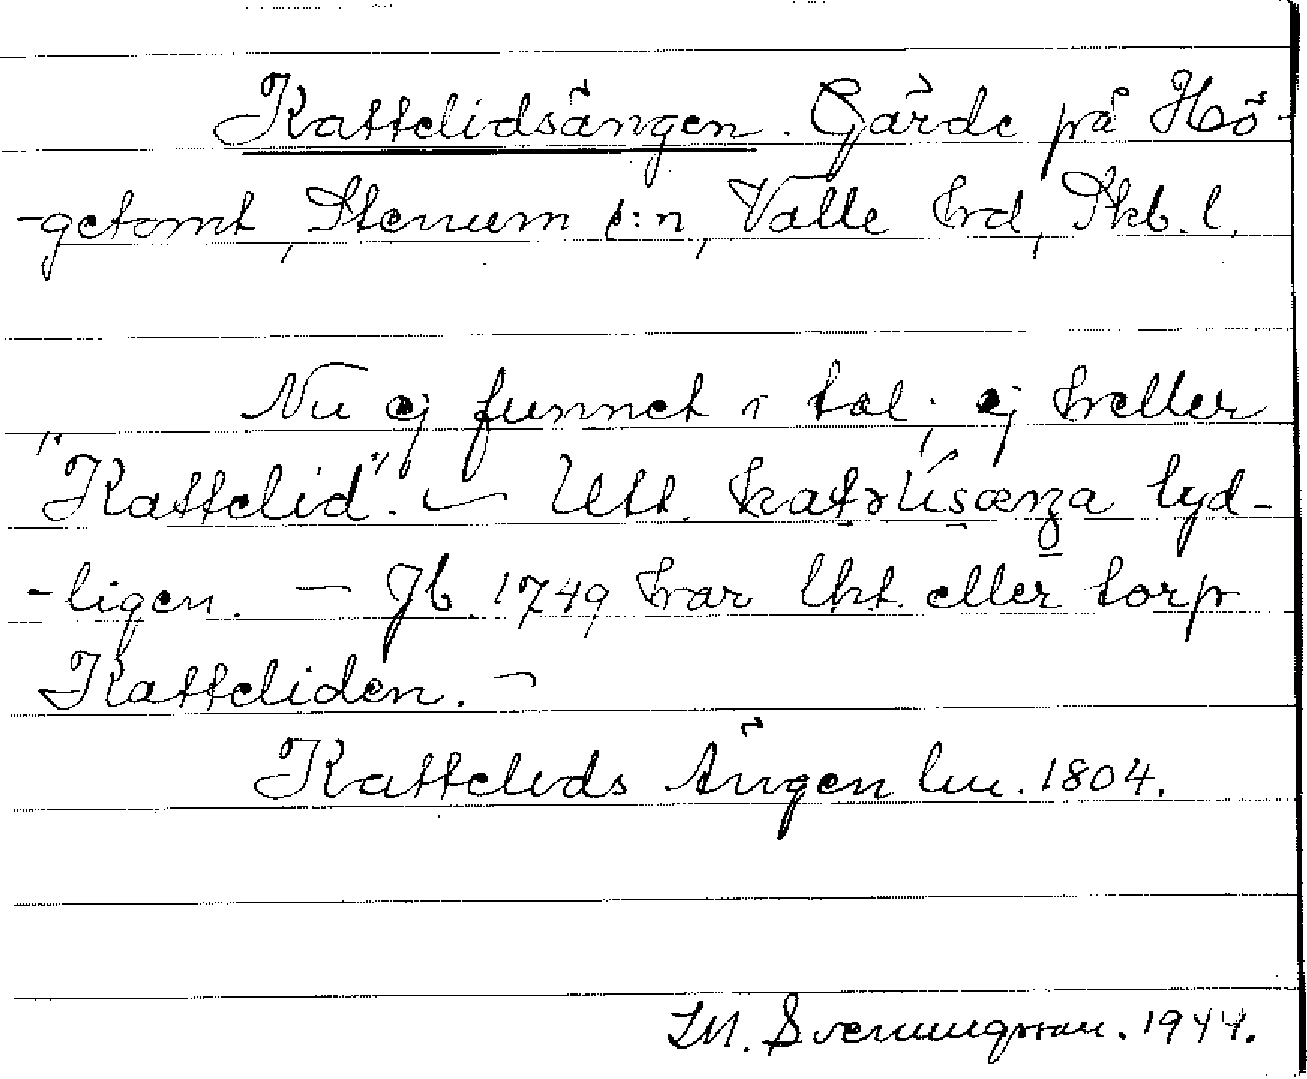 Kattelidsängen. Gärde på Hö-
-getomt, Stenum s:n, Valle hrd, Skb. l.
Nu ej funnet i tal; ej heller
"Kattelid". — Utt. tydligt
-ligen. — Jb. 1749 har lht. eller torp
Katteliden. —
Kattelids Ängen lm. 1804.
M. Svenungsson. 1944.